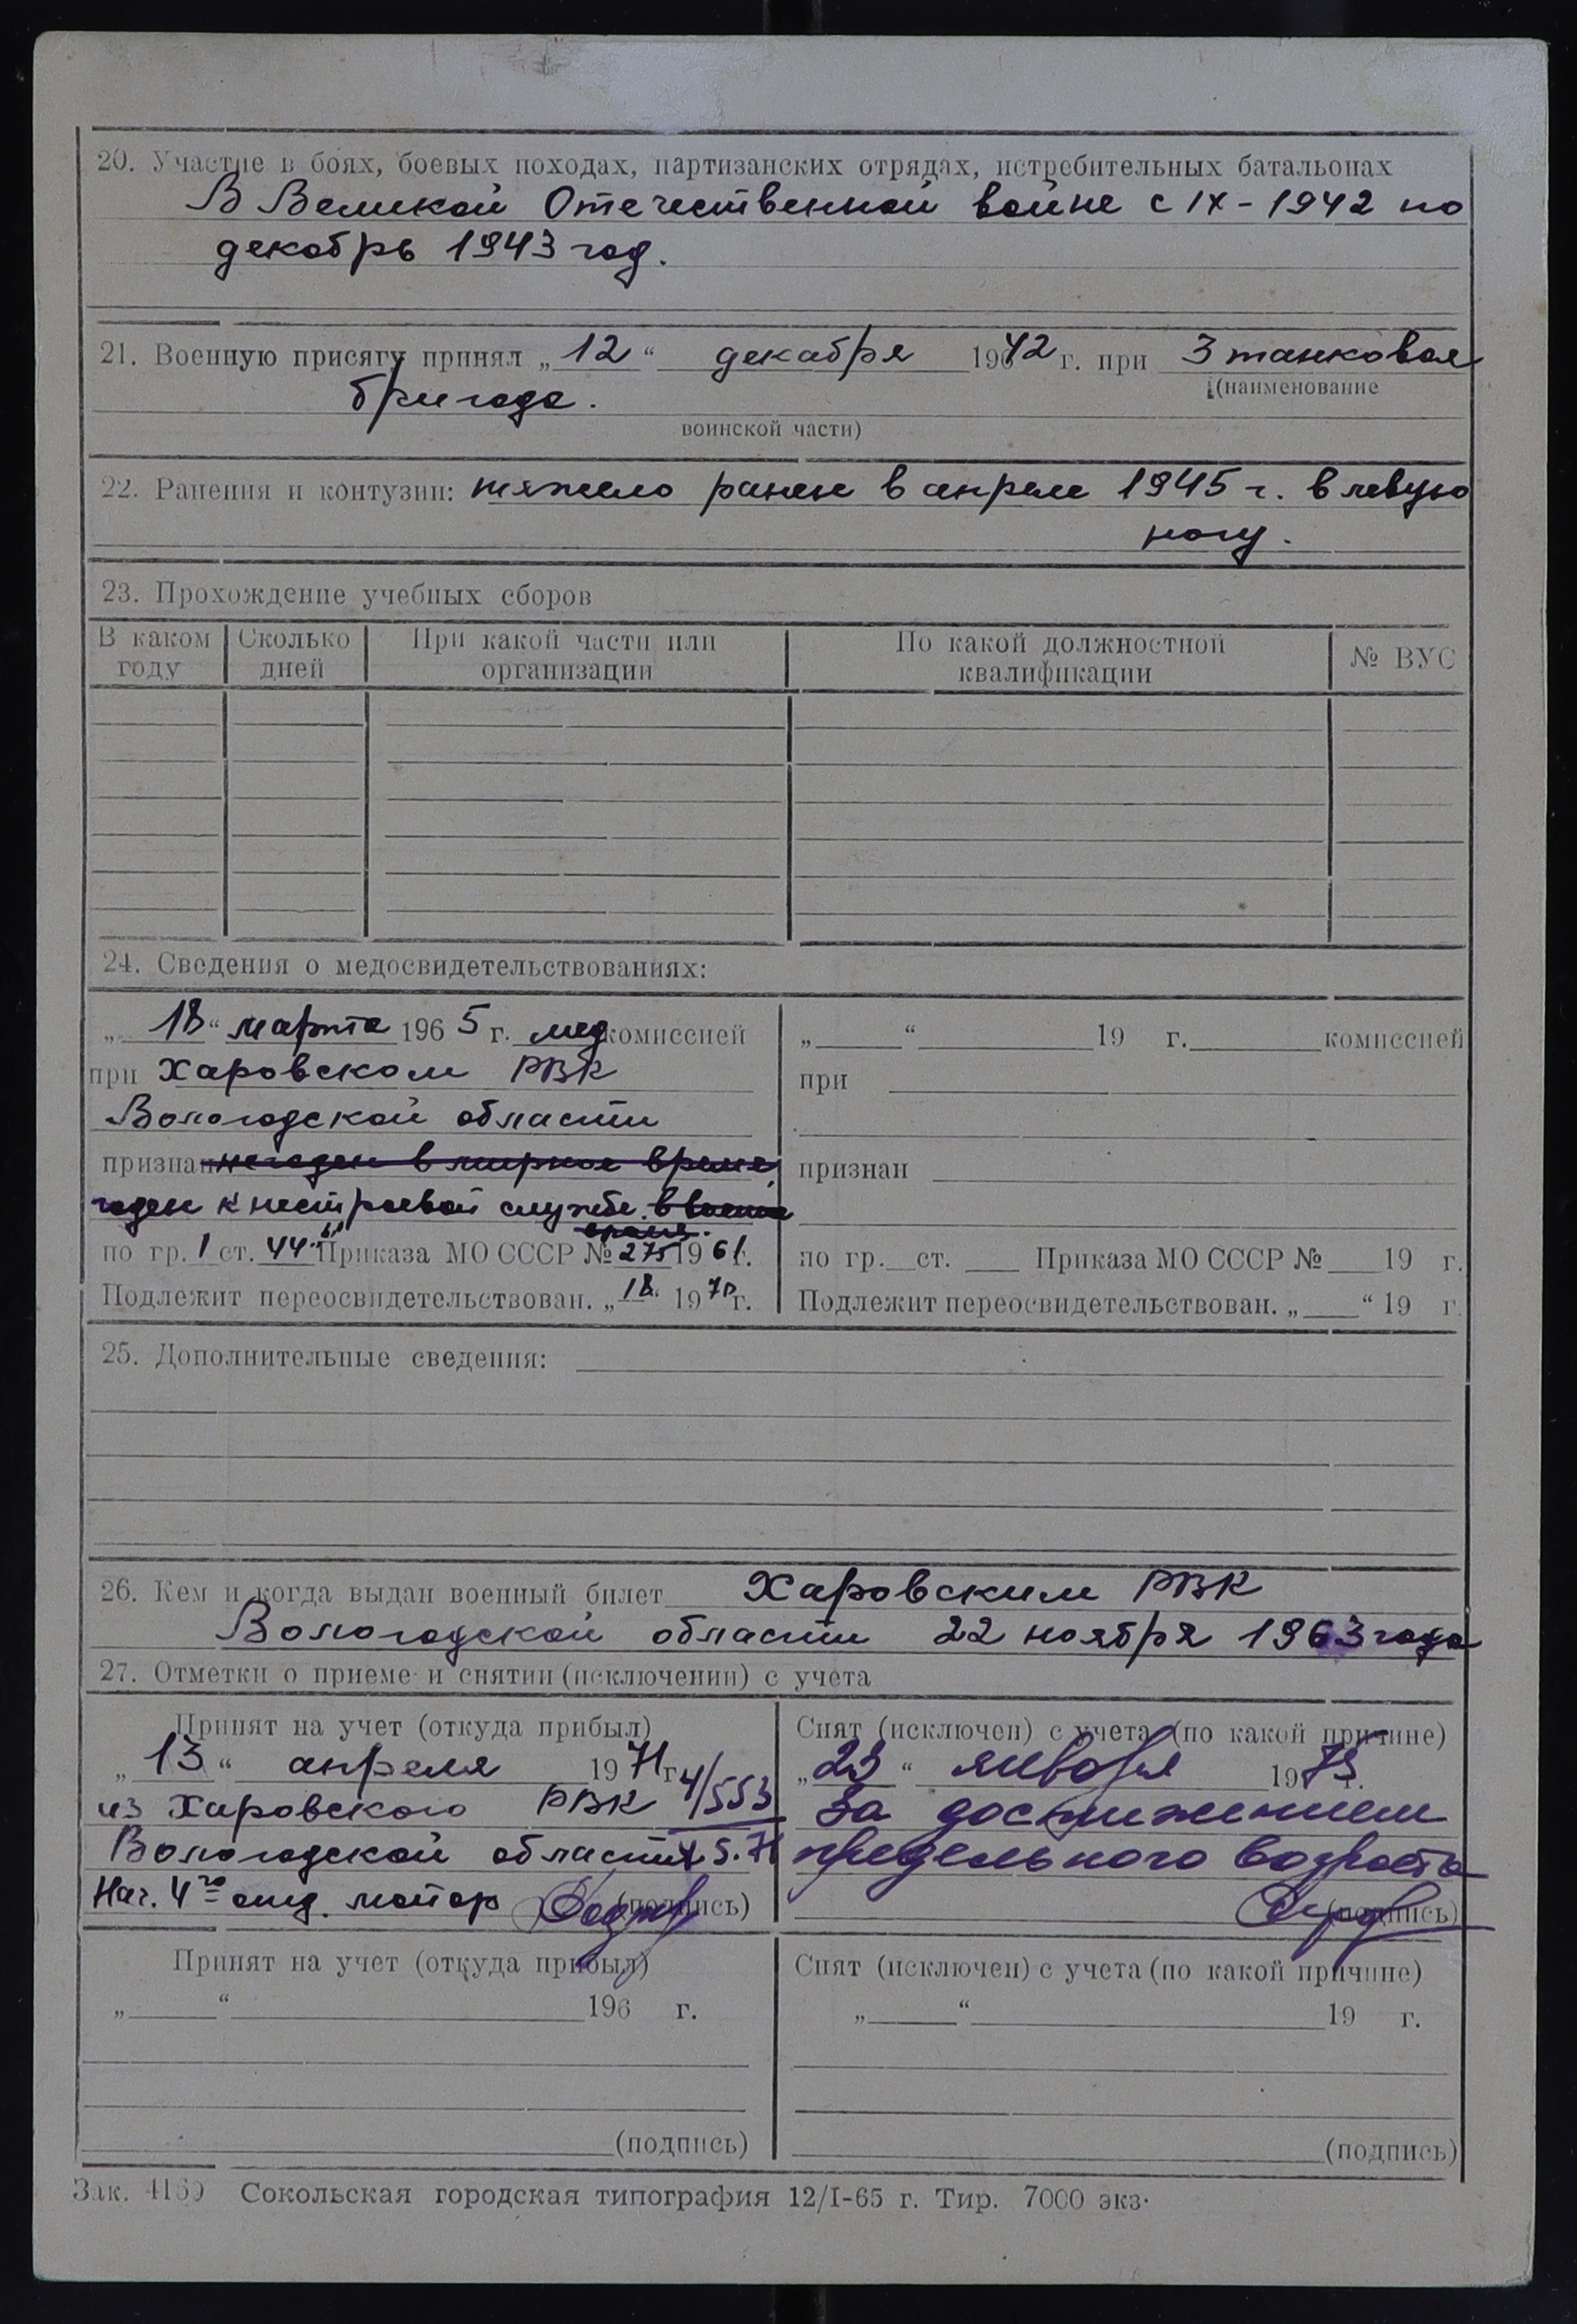 20. Участие в боях, боевых походах, партизанских отрядах, истребительных батальонах
В Великой Отечественной войне с IX-1942 по
декабрь 1943 год.
21. Военную присягу принял „12“ декабря 1942 г. при 3 танковая
(наименование
бригада.
воинской части)
22. Ранения и контузии: тяжело ранен в апреле 1945 г. в левую
ногу.
23. Прохождение учебных сборов
В каком году Сколько дней При какой части или организации По какой должностной квалификации № ВУС
24. Сведения о медосвидетельствованиях:
„18“ марта 1965 г. медкомиссией
при Харовском РВК
Вологодской области
признан негоден в мирное время,
годен к нестроевой службе в военное
время.
по гр. 1 ст. 44 Приказа МО СССР № 275 1961 г.
Подлежит переосвидетельствован. „18“ 1970 г.
„ “ 19 г. комиссией
при
признан
по гр. ст. Приказа МО СССР № 19 г.
Подлежит переосвидетельствован. „ “ 19 г.
25. Дополнительные сведения:
26. Кем и когда выдан военный билет Харовским РВК
Вологодской области 22 ноября 1963 года
27. Отметки о приеме и снятии (исключении) с учета
Принят на учет (откуда прибыл)
„13“ апреля 1971 г. 4/553
из Харовского РВК
Вологодской области 5.71
Нач. 4го отд. майор (подпись)
Снят (исключен) с учета (по какой причине)
„23“ января 1973 г.
За достижением
предельного возраста
(подпись)
Принят на учет (откуда прибыл)
„ “ 196 г.
(подпись)
Снят (исключен) с учета (по какой причине)
„ “ 19 г.
(подпись)
Зак. 4169 Сокольская городская типография 12/I-65 г. Тир. 7000 экз.